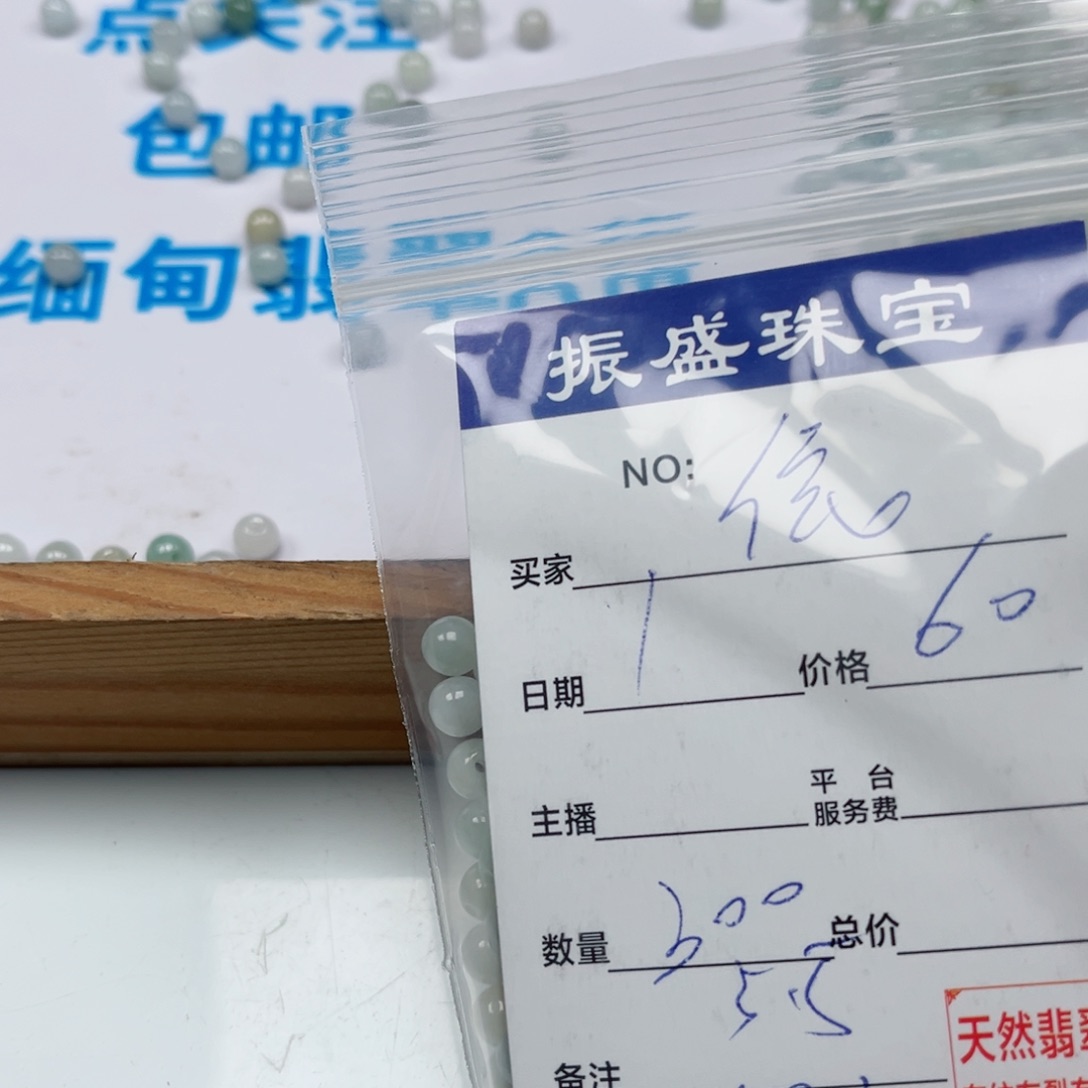 点关注
包邮
缅甸翡翠
振盛珠宝
NO:
买家
日期 1 价格 60
主播 平台服务费
数量 300 总价
5.5
备注
天然翡翠